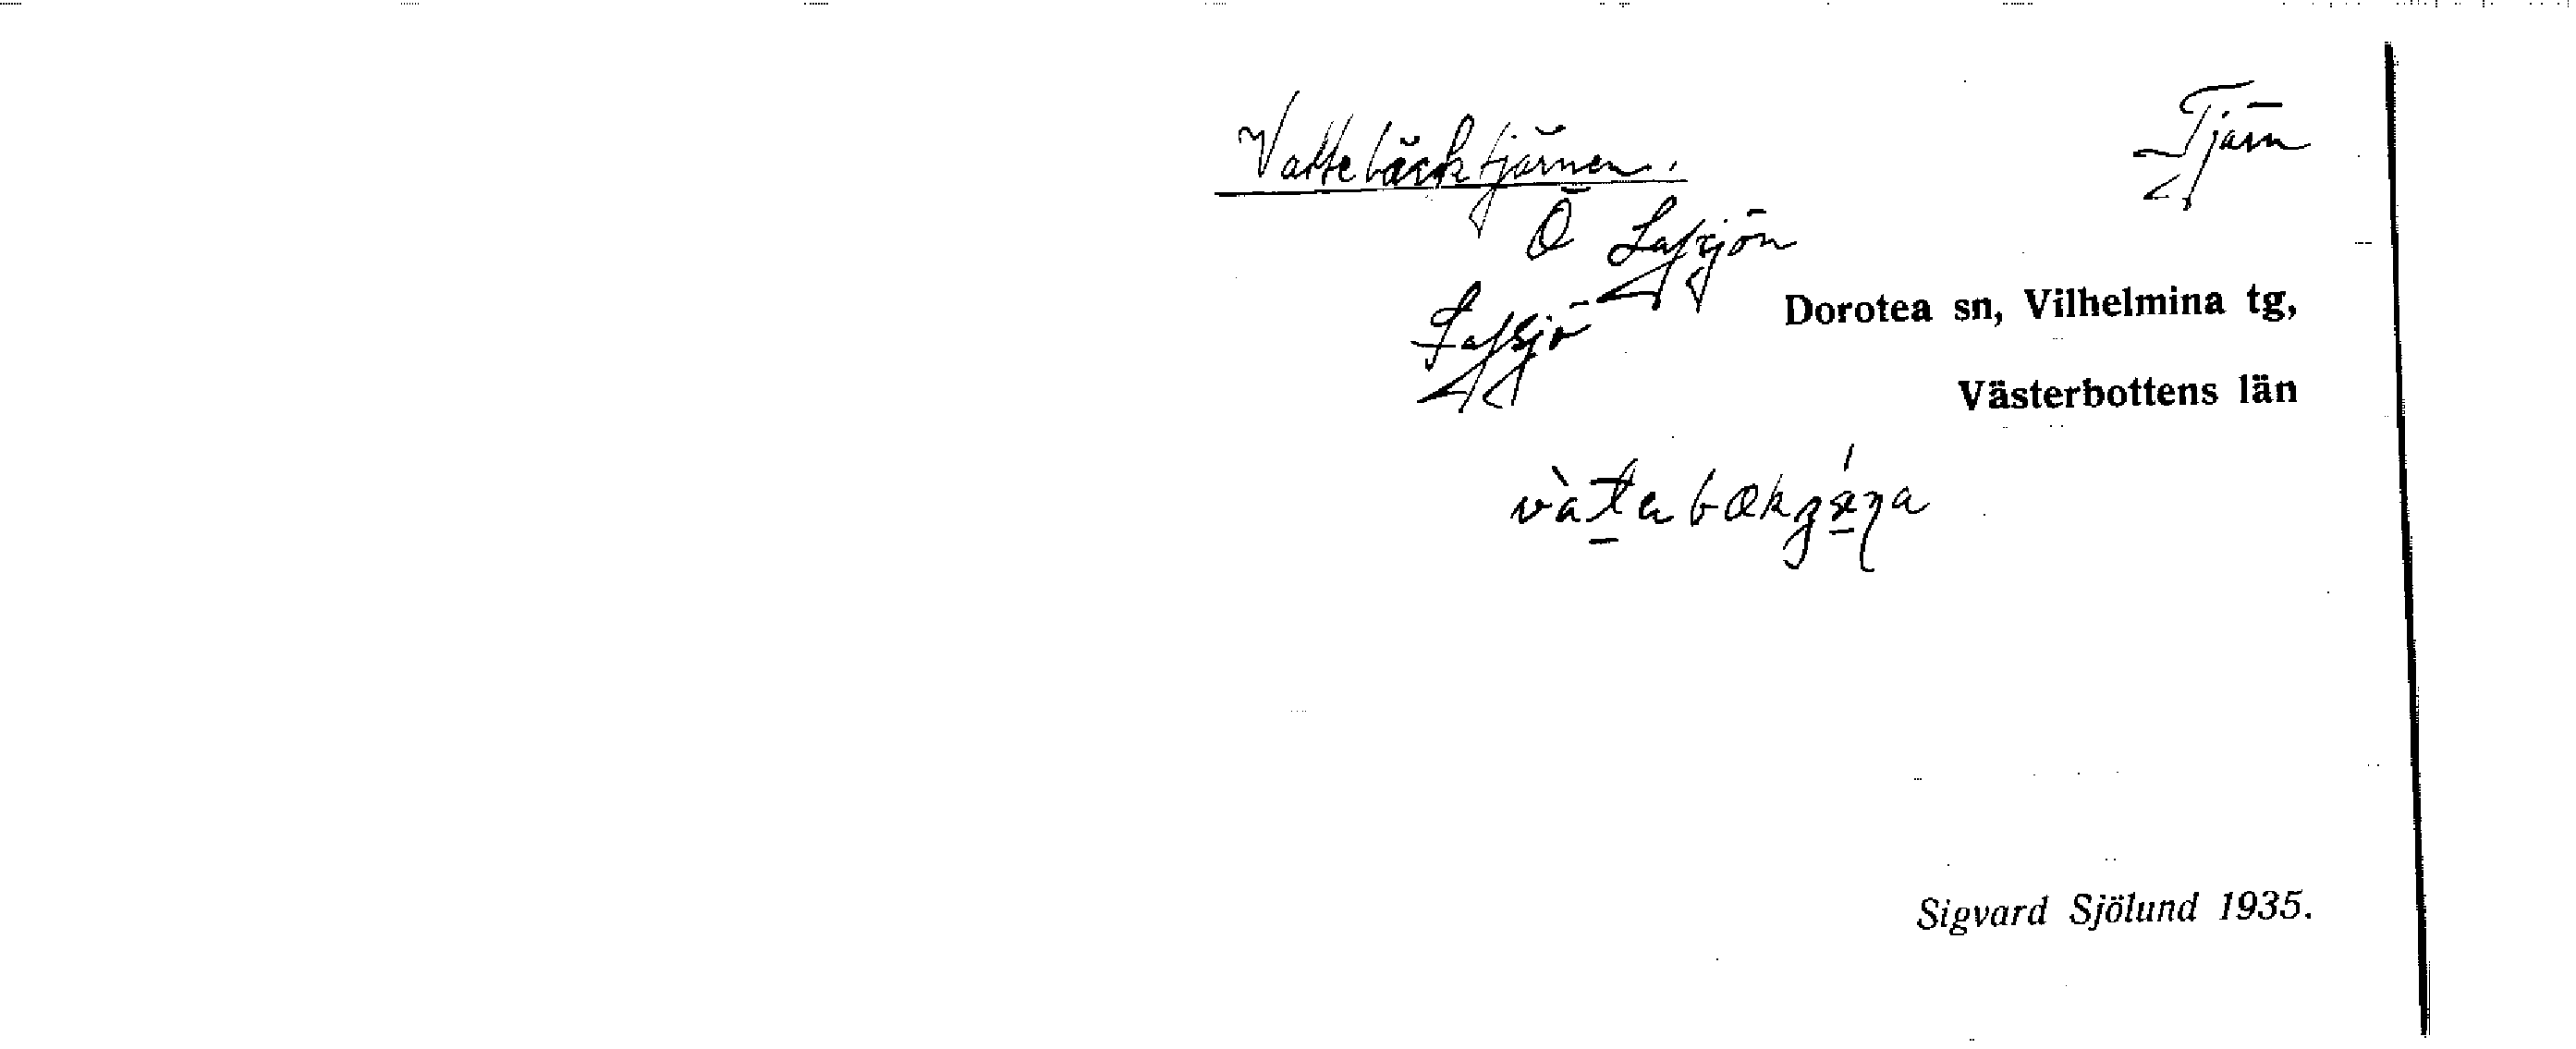 Vattebäcktjärnen.
Tjärn
Ö Lafsjön
Lafsjö
Dorotea sn, Vilhelmina tg,
Västerbottens län
Sigvard Sjölund 1935.